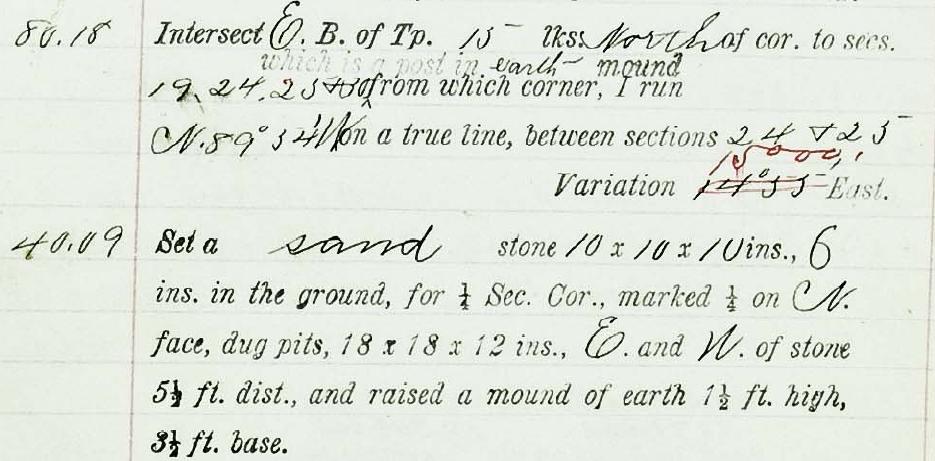 80.18 Intersect E. B. of Tp. 15 lks. North of cor. to secs.
which is a post in earth mound
19, 24, 25 + 30 from which corner, I run
N. 89° 54' W on a true line, between sections 24 + 25
15° 00'
Variation 14° 55' East.
40.09 Set a sand stone 10 x 10 x 10 ins., 6
ins. in the ground, for ¼ Sec. Cor., marked ¼ on N.
face, dug pits, 18 x 18 x 12 ins., E. and W. of stone
5½ ft. dist., and raised a mound of earth 1½ ft. high,
3½ ft. base.